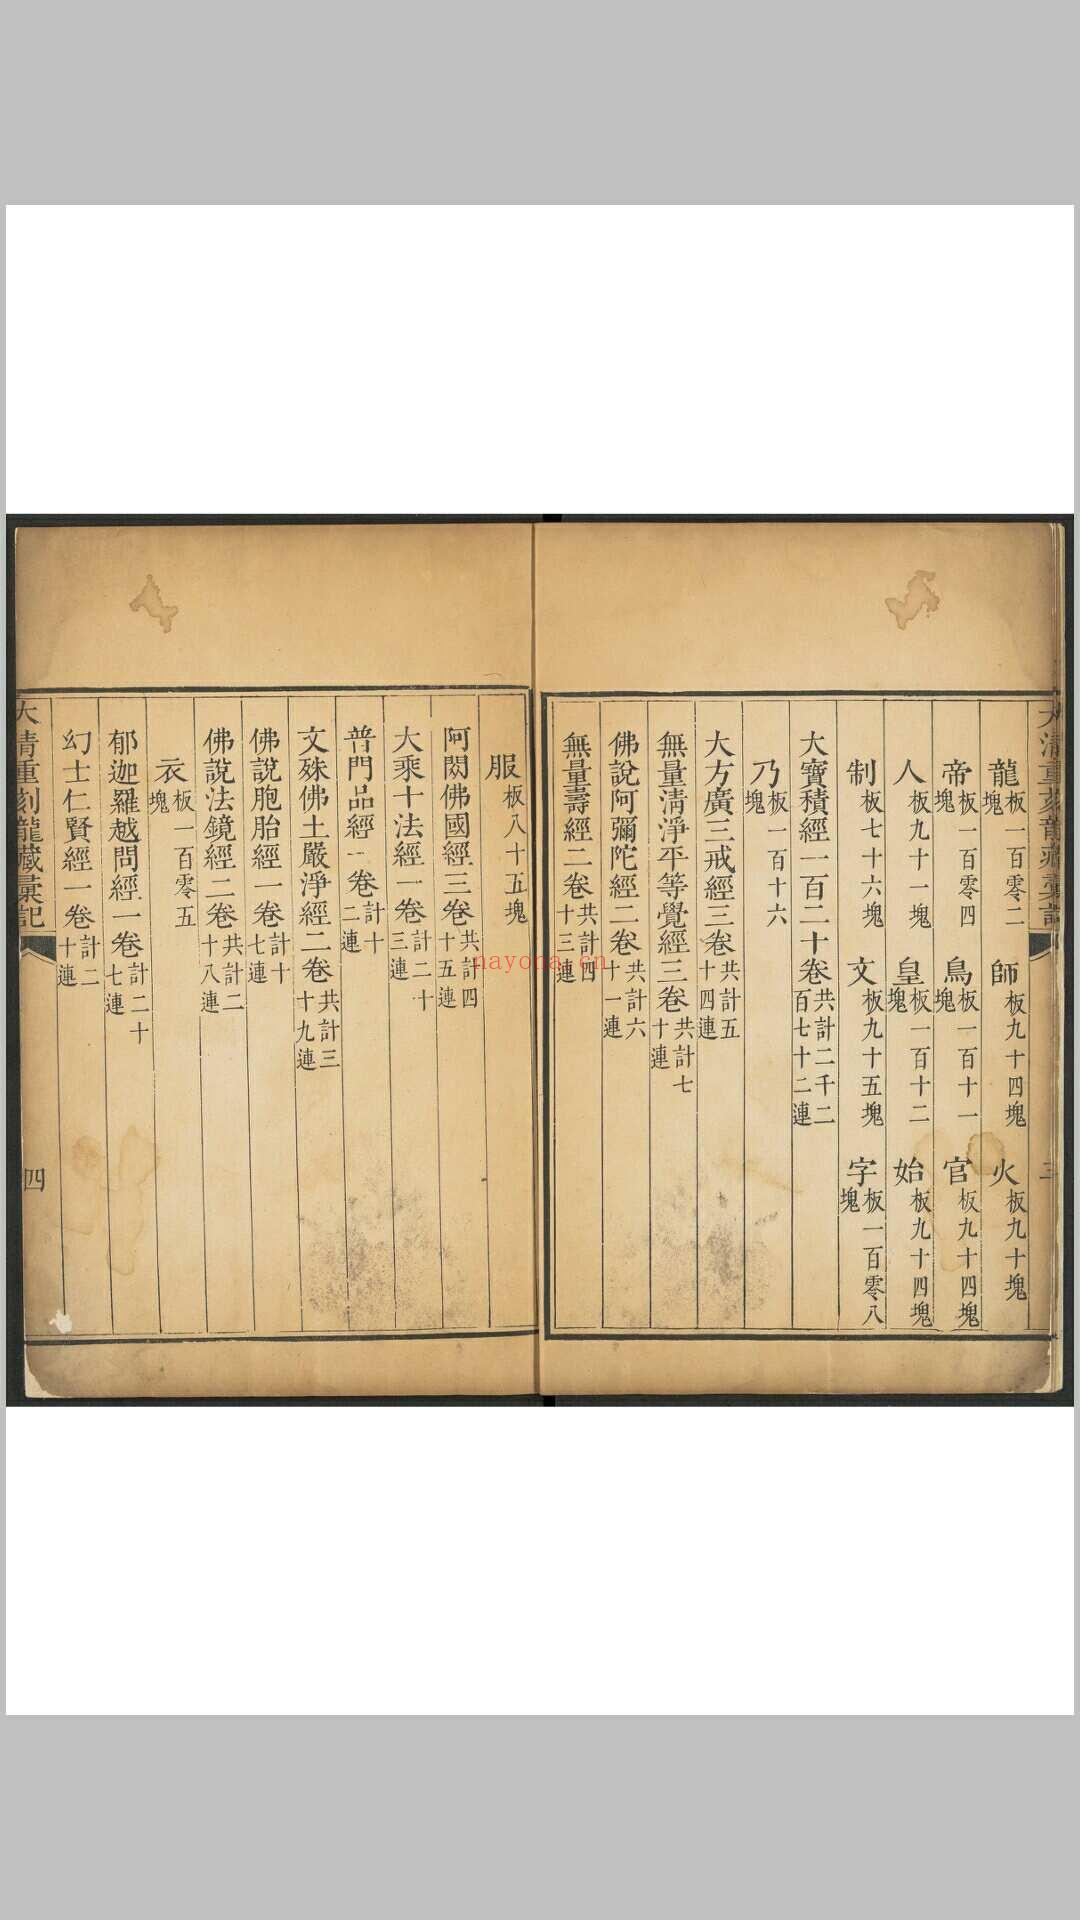 大清重刻龍藏彙記
三
龍板一百零二塊 師板九十四塊 火板九十塊
帝板一百零四塊 鳥板一百十一塊 官板九十四塊
人板九十一塊 皇板一百十二塊 始板九十四塊
制板七十六塊 文板九十五塊 字板一百零八塊
大寶積經一百二十卷共計二千二百七十二連
乃板一百十六塊
大方廣三戒經三卷共計五十四連
無量清淨平等覺經三卷共計七十連
佛說阿彌陀經二卷共計六十一連
無量壽經二卷共計四十三連
服板八十五塊
阿閦佛國經三卷共計四十五連
大乘十法經一卷計二十三連
普門品經一卷計十二連
文殊佛土嚴淨經二卷共計三十九連
佛說胞胎經一卷計十七連
佛說法鏡經二卷共計二十八連
衣板一百零五塊
郁迦羅越問經一卷計二十七連
幻士仁賢經一卷計二十連
大清重刻龍藏彙記
四
nayona.cn